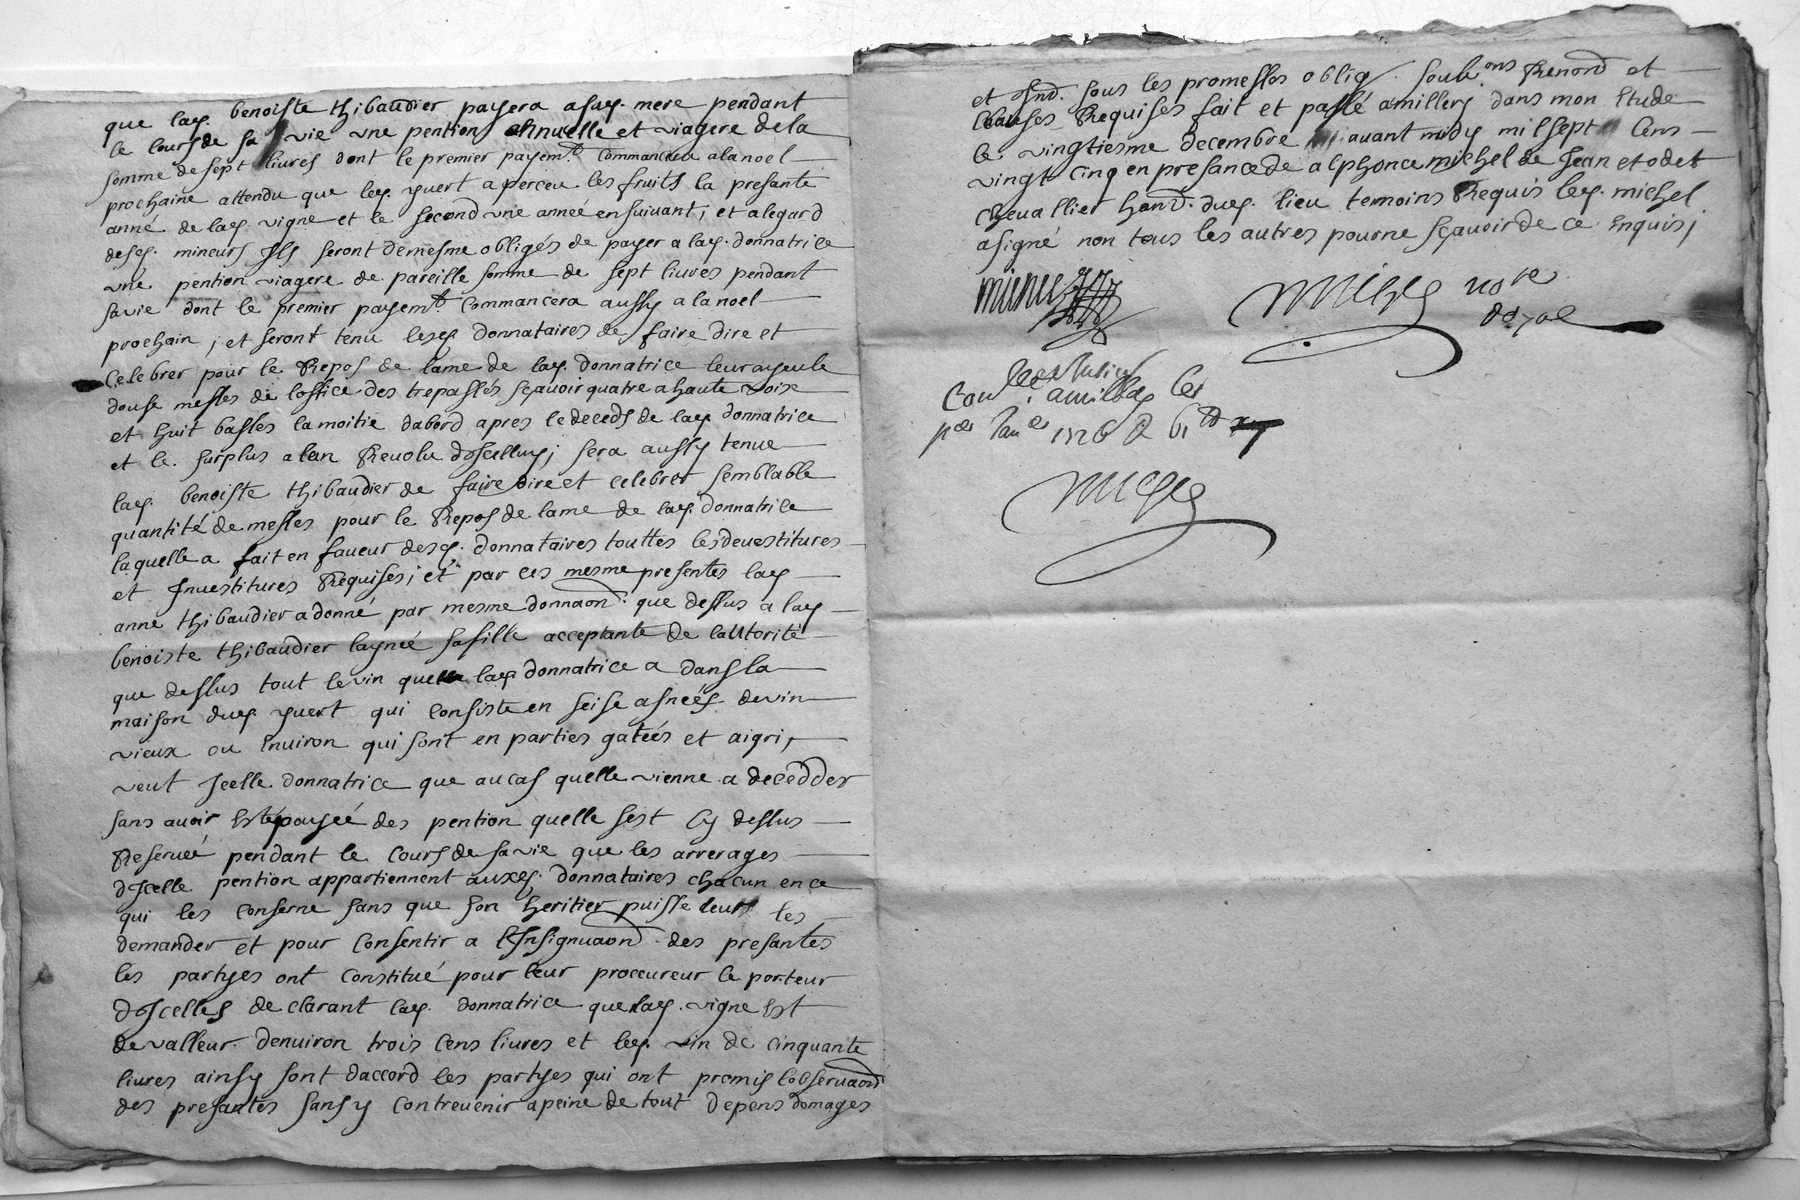 que lad. benoiste thibaudier payera a sad. mere pendant
le cours de sa vie une pention annuelle et viagere de la
somme de sept livres dont le premier payemt. commancera a la noel
prochaine attendu que led. yvert a perceu les fruits la presante
anné de lad. vigne et le second une anneé ensuivant, et a legard
desd. mineurs Ils seront de mesme obligés de payer a lad. donnatrice
une pention viagere de pareille somme de sept livres pendant
sa vie dont le premier payemt. commancera aussy a la noel
prochain, et seront tenu lesd. donnataires de faire dire et
celebrer pour le Repos de lame de lad. donnatrice leur ayeule
douse messes de loffice des trepassés sçavoir quatre a haute voix
et huit basses la moitie dabord apres le deceds de lad. donnatrice
et le surplus a lan Revolu dIcelluy, sera aussy tenue
lad. benoiste thibaudier de faire dire et celebrer semblable
quantité de messes pour le Repos de lame de lad. donnatrice
laquelle a fait en faveur desd. donnataires touttes les devestitures
et Investitures Requises, et par ces mesme presentes lad.
anne thibaudier a donné par mesme donnaon. que dessus a lad.
benoiste thibaudier laynée sa fille acceptante de lautorité
que dessus tout le vin que lad. donnatrice a dans la
maison dud. yvert qui consiste en seise asnées de vin
vieux ou Environ qui sont en parties gateés et aigri,
veut Icelle donnatrice que au cas quelle vienne a decedder
sans avoir Esté payeé des pention quelle sest cy dessus
Reserveé pendant le cours de sa vie que les arrerages
dIcelle pention appartiennent auxd. donnataires chacun en ce
qui les conserne sans que son heritier puisse leur les
demander et pour consentir a lInsignuaon. des presantes
les partyes ont constitué pour leur procureur le porteur
dIcelles declarant lad. donnatrice que lad. vigne Est
de valleur denviron trois cens livres et led. vin de cinquante
livres ainsy sont daccord les partyes qui ont promis lobservaon
des presantes sans y contrevenir a peine de tout depens domages
et Ind. sous les promesses oblig. soub.ons Renond et
clauses Requises fait et passé a millery dans mon Etude
le vingtiesme decembre avant midy mil sept cens
vingt cinq en presance de alphonce michel de Jean et odet
chevallier hand. dud. lieu temoins Requis led. michel
a signé non tous les autres pour ne sçavoir de ce Enquis,
michel
nore
Royal
Con